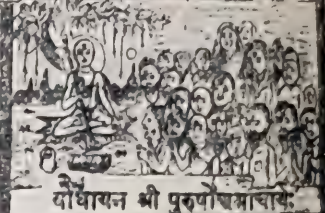 बोधायन श्री पुरुषोत्तमाचार्यः